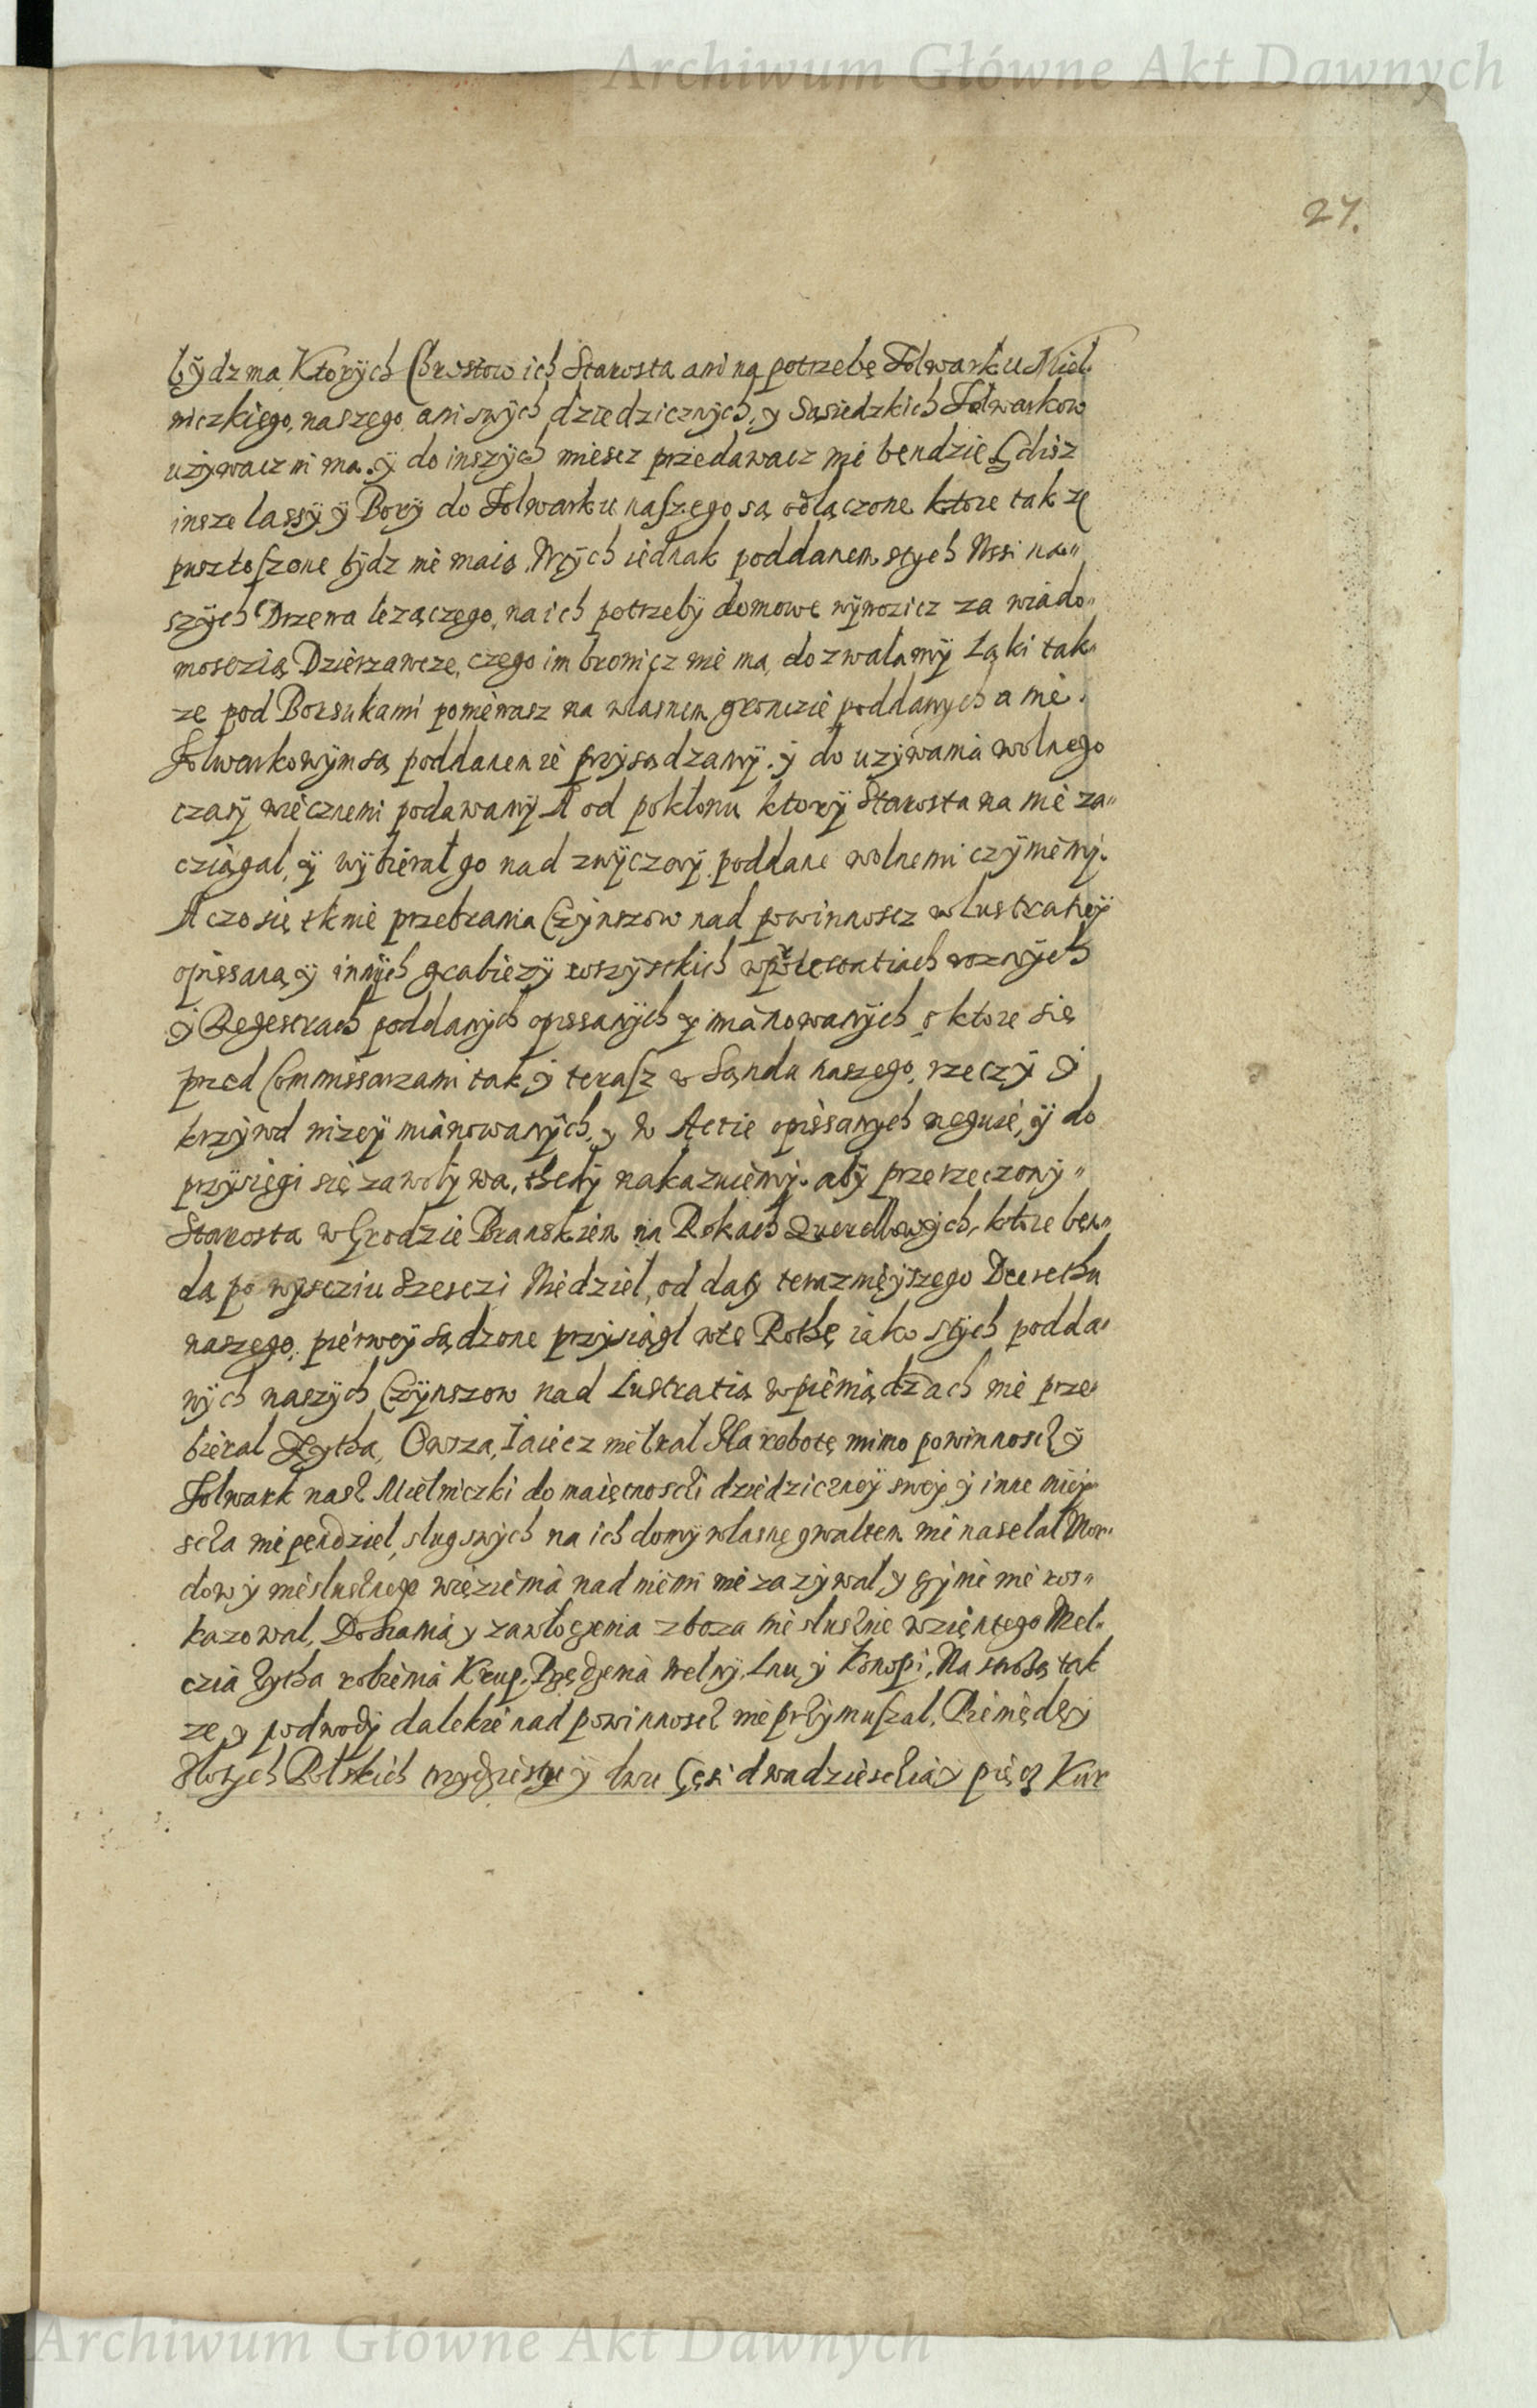 Archiwum Główne Akt Dawnych
27.
bÿdz ma Ktorÿch Chrostow ich Starosta ani na potrzebę Folwarku Miel-
niczkiego, naszego ani swÿch dziedzicznÿch, y Sąsiedzkich Folwarkow
uzÿwacz ni ma. ÿ do inszÿch miescz przedawacz nie bendzie Gdisz
insze lassÿ ÿ Borÿ do Folwarku naszego są odłączone ktore takze
pustoszone bÿdz nie maią. W tÿch iednak poddanem stÿch Wssi na„
szÿch Drzewa lezączego, na ich potrzebÿ domowe wÿwozicz za wiado„
mosczią Dzierzawcze, czego im bronicz nie ma, dozwalamÿ Łąki tak„
ze pod Borsukami poniewasz na własnem gronczie poddanych a nie
Folwarkowÿm są poddanem ie przÿsądzamÿ. ÿ do uzÿwania wolnego
czasÿ wiecznemi podawamÿ A od pokłonu ktorÿ Starosta na nie za„
cziągał, ÿ wÿbierał go nad zwÿczaÿ poddane wolnemi czÿniemÿ.
A czo się tknie przebrania Czÿnszow nad powinnoscz w Lustratieÿ
opissaną ÿ innÿch grabiezÿ wszÿstkich w protestatiach roznÿch
ÿ Regestrach poddanÿch opissanÿch ÿ mianowanÿch o ktore się
przed Commissarzami tak ÿ terasz u Sąndu naszego, rzeczÿ ÿ
krzÿwd nizeÿ mianowanÿch, y w Actie opissanÿch neguie, ÿ do
przÿsięgi się zawoływa, thedÿ nakazuiemÿ. abÿ przerzeczonÿ„
Starosta w Grodzie Branskiem na Rokach Querellowÿch, ktore ben„
dą po wÿsciu szesczi Niedziel, od datÿ teraznieÿszego Decrethu
naszego, pierweÿ sądzone przÿsiągł w tę Rothę iako stÿch podda„
nÿch naszÿch Czÿnszow nad Lustratią w pieniądzach nie prze„
bierał Zÿtha, Owsza, Iaiecz nie brał Na robotę mimo powinnoscz ÿ
Folwark nasz Mielniczki do maiętnosczi dziedziczneÿ sweÿ ÿ inne mieÿ„
scza nie pendził, sług swÿch na ich domÿ własne gwałtem nie nasełał Mor„
dow ÿ niesłusznego więzienia nad niemi nie zazÿwał y czÿnie nie ros„
kazował, Dobrania y zawłoczenia zboza niesłusznie wzientego Mel„
czia Zÿtha robienia Krup, Przędzenia Wełnÿ, Lnu, ÿ Konopi, Na swobą tak
ze y podwodÿ dalekie nad powinnoscz nie przÿmuszał, Pieniędzÿ
Złotÿch Polskich trzÿdziestu ÿ dwu Gęsi dwadzieszcia y pięcz Kur
Archiwum Główne Akt Dawnych